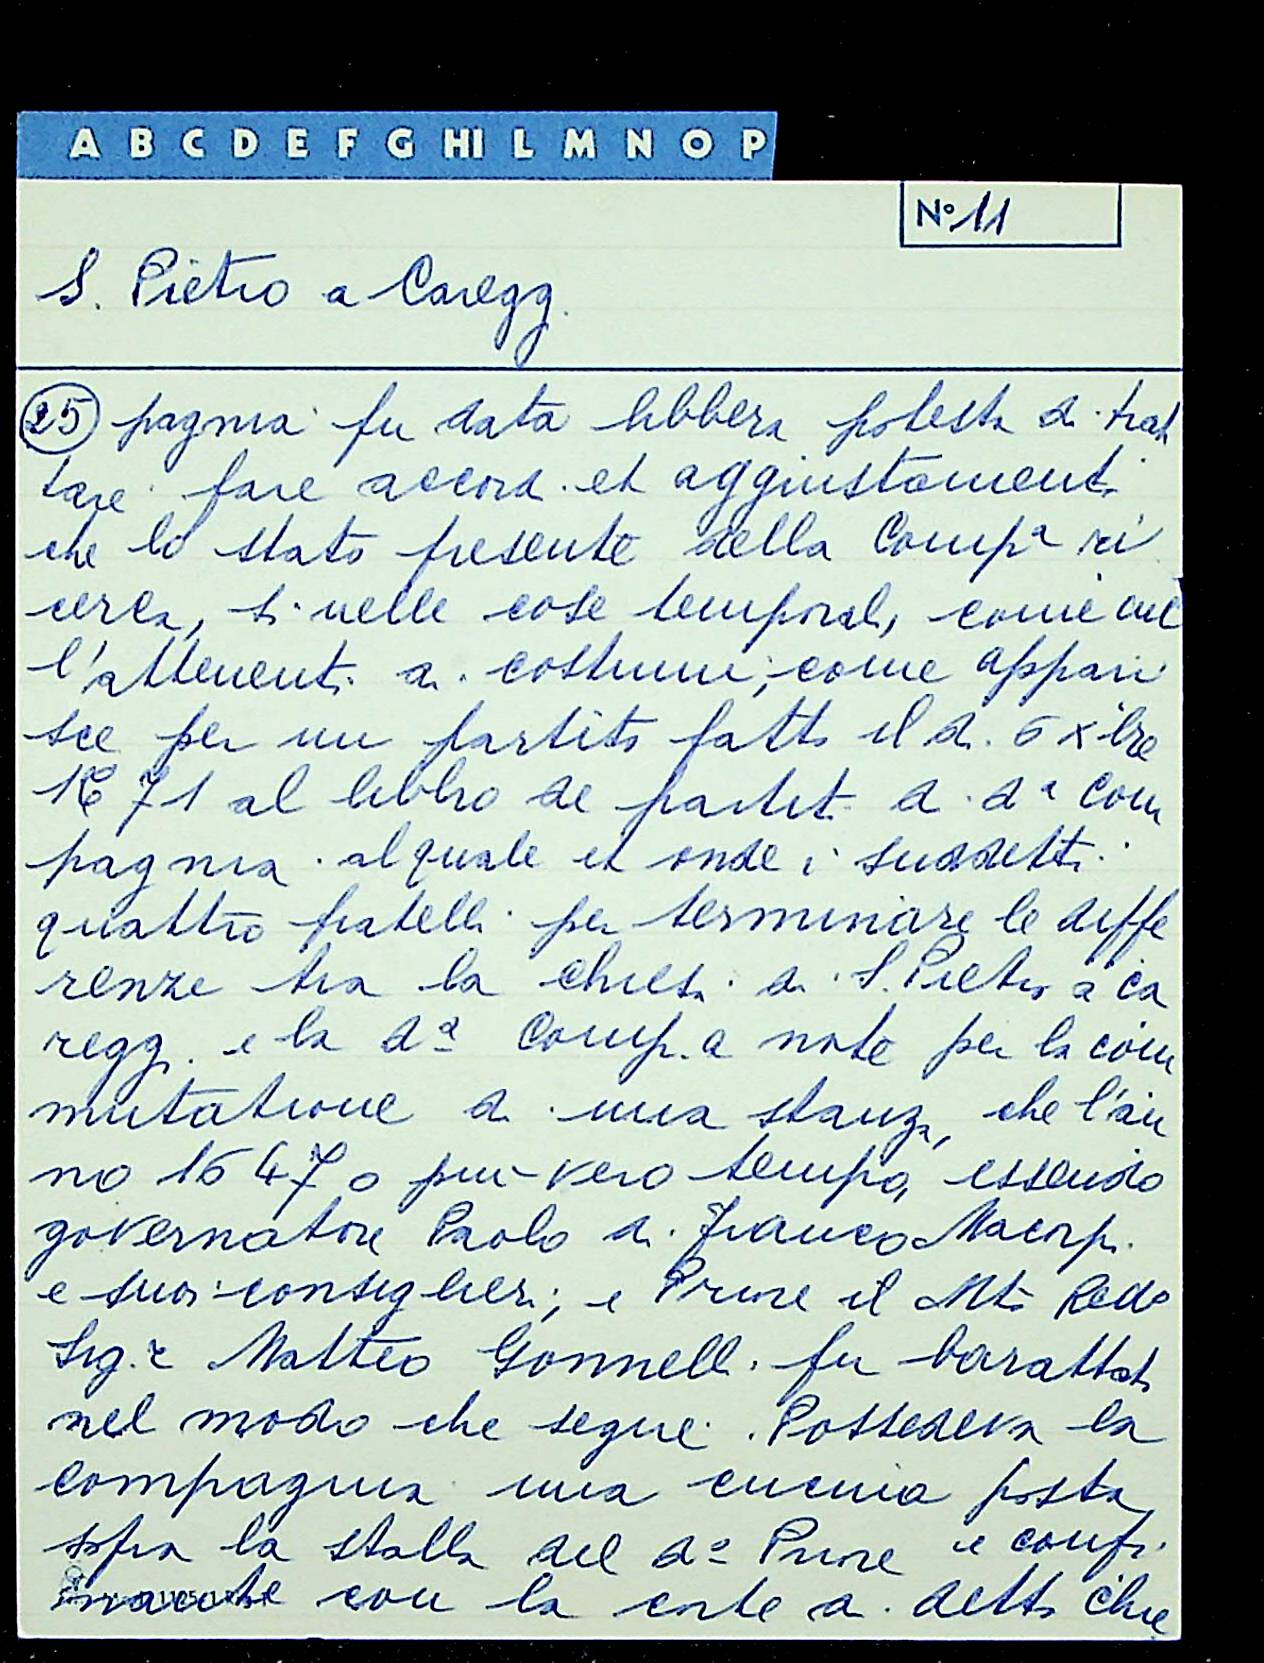 A B C D E F G HI L M N O P
N° 11
S. Pietro a Caregg.
25 pagnia fu data libbera potestà di trat
tare fare accord. et aggiustamenti
che lo stato presente della Compª ri
cerca, si nelle cose temporali, come nel
l'attenenti a. costumi, come appari
sce per un partito fatto il dì 6 xbre
1671 al libbro de partiti di dª Com
pagnia al quale et onde i suddetti
quattro fratelli per terminare le diffe
renze tra la chiesa di S. Pietro a Ca
regg. e la dª Comp.a note per la com
mutatione di una stanza, che l'an
no 1647 o piu vero tempo, essendo
governatore Paolo di Franco
e suoi consiglieri, e Priore il Mto Redo
Sig.r Matteo Gonnelli fu barattata
nel modo che segue. Possedeva la
compagnia una cucina posta
sopra la stalla del dº Priore e confi
nante con la corte di detta Chie